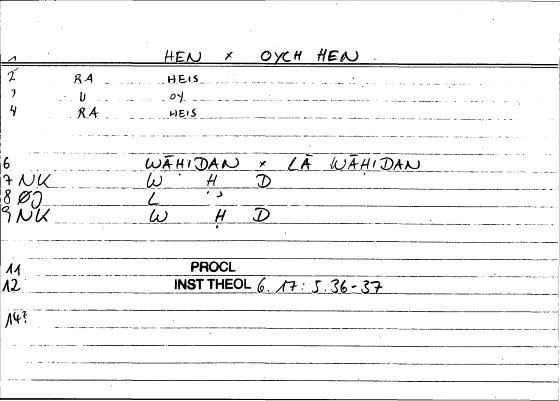 1 HEN × OYCH HEN
2 RA HEIS
3 U OY
4 RA HEIS
6 WĀḤIDAN × LĀ WĀḤIDAN
7 NK W Ḥ D
8 ØJ L
9 NK W Ḥ D
11 PROCL
12 INST THEOL 6. 17: 5.36-37
14?